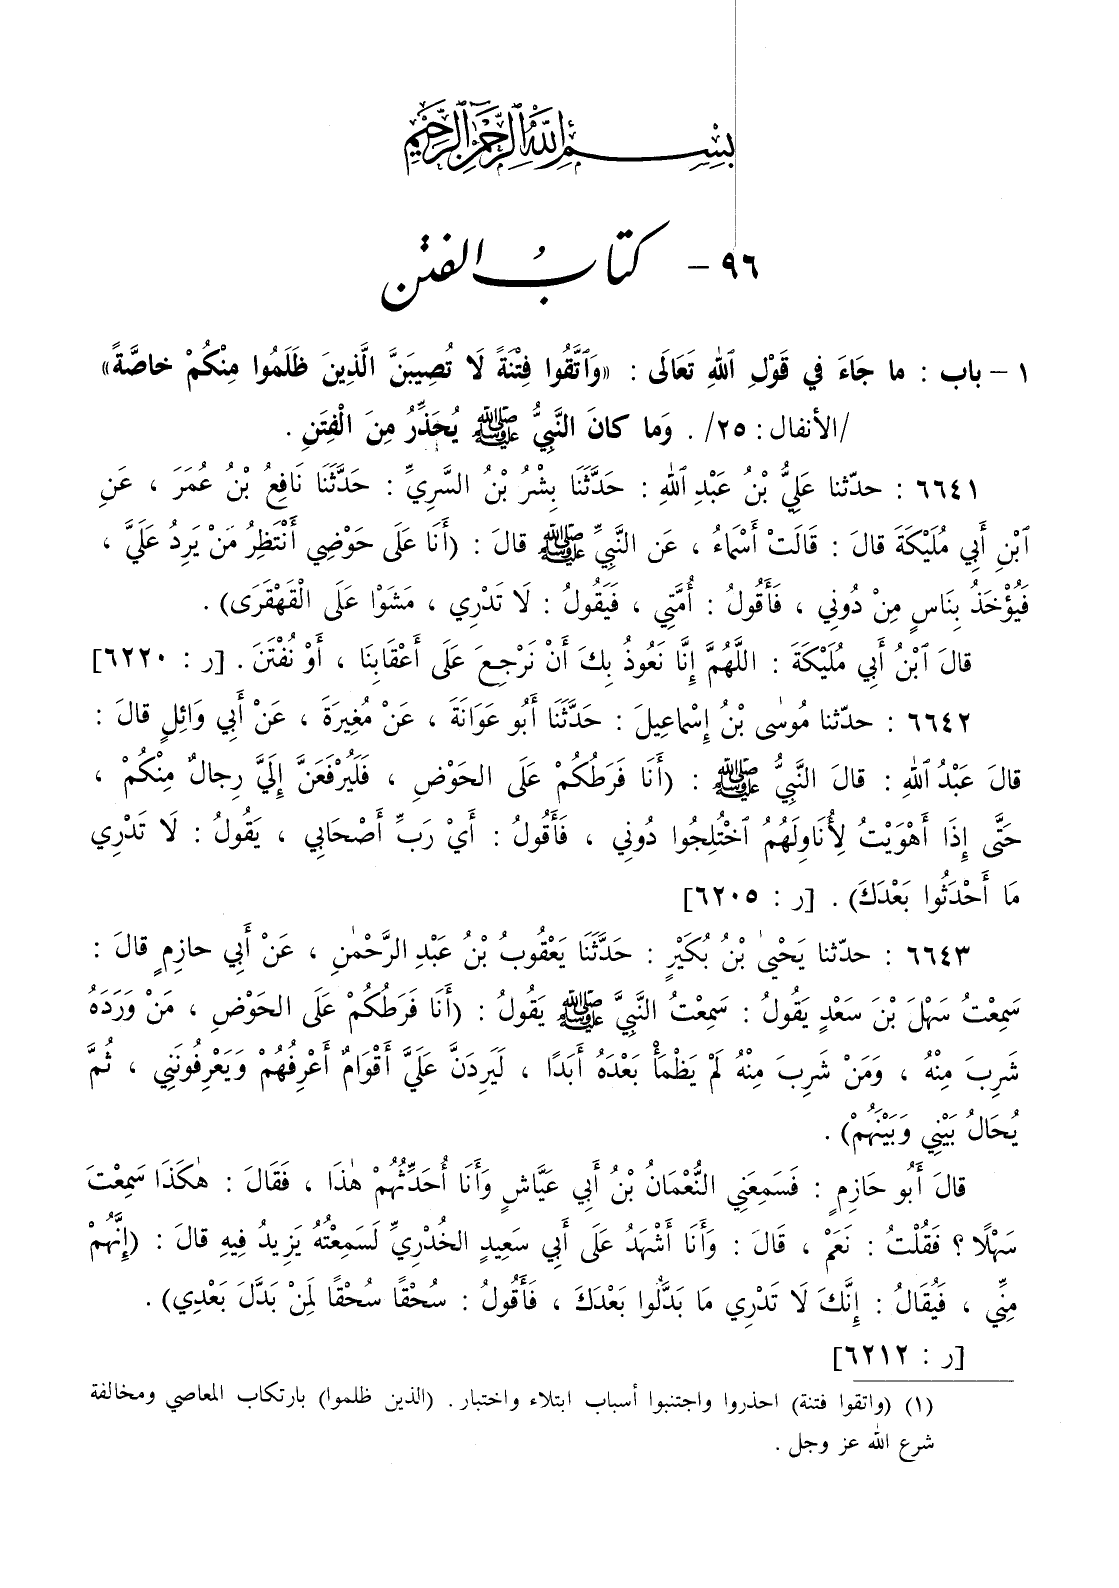 بِسْمِ اللَّهِ الرَّحْمَنِ الرَّحِيمِ
٩٦ - كتابُ الفتن
١ - باب : ما جَاءَ في قَوْلِ ٱللهِ تَعَالَى : «وَٱتَّقُوا فِتْنَةً لَا تُصِيبَنَّ الَّذِينَ ظَلَمُوا مِنْكُمْ خاصَّةً»
/الأنفال : ٢٥/ . وَما كانَ النَّبِيُّ ﷺ يُحَذِّرُ مِنَ الْفِتَنِ .
٦٦٤١ : حدّثنا عَلِيُّ بْنُ عَبْدِ ٱللهِ : حَدَّثَنَا بِشْرُ بْنُ السَّرِيِّ : حَدَّثَنَا نَافِعُ بْنُ عُمَرَ ، عَنِ
ٱبْنِ أَبِي مُلَيْكَةَ قالَ : قَالَتْ أَسْمَاءُ ، عَنِ النَّبِيِّ ﷺ قالَ : (أَنَا عَلَى حَوْضِي أَنْتَظِرُ مَنْ يَرِدُ عَلَيَّ ،
فَيُؤْخَذُ بِنَاسٍ مِنْ دُونِي ، فَأَقُولُ : أُمَّتِي ، فَيَقُولُ : لَا تَدْرِي ، مَشَوْا عَلَى الْقَهْقَرَى) .
قالَ ٱبْنُ أَبِي مُلَيْكَةَ : اللَّهُمَّ إِنَّا نَعُوذُ بِكَ أَنْ نَرْجِعَ عَلَى أَعْقَابِنَا ، أَوْ نُفْتَنَ . [ر : ٦٢٢٠]
٦٦٤٢ : حدّثنا مُوسٰى بْنُ إِسْماعِيلَ : حَدَّثَنَا أَبُو عَوَانَةَ ، عَنْ مُغِيرَةَ ، عَنْ أَبِي وَائِلٍ قالَ :
قالَ عَبْدُ ٱللهِ : قالَ النَّبِيُّ ﷺ : (أَنَا فَرَطُكُمْ عَلَى الحَوْضِ ، فَلَيُرْفَعَنَّ إِلَيَّ رِجالٌ مِنْكُمْ ،
حَتَّى إِذَا أَهْوَيْتُ لِأُنَاوِلَهُمُ ٱخْتُلِجُوا دُونِي ، فَأَقُولُ : أَيْ رَبِّ أَصْحَابِي ، يَقُولُ : لَا تَدْرِي
مَا أَحْدَثُوا بَعْدَكَ) . [ر : ٦٢٠٥]
٦٦٤٣ : حدّثنا يَحْيٰى بْنُ بُكَيْرٍ : حَدَّثَنَا يَعْقُوبُ بْنُ عَبْدِ الرَّحْمٰنِ ، عَنْ أَبِي حازِمٍ قالَ :
سَمِعْتُ سَهْلَ بْنَ سَعْدٍ يَقُولُ : سَمِعْتُ النَّبِيَّ ﷺ يَقُولُ : (أَنَا فَرَطُكُمْ عَلَى الحَوْضِ ، مَنْ وَرَدَهُ
شَرِبَ مِنْهُ ، وَمَنْ شَرِبَ مِنْهُ لَمْ يَظْمَأْ بَعْدَهُ أَبَدًا ، لَيَرِدَنَّ عَلَيَّ أَقْوَامٌ أَعْرِفُهُمْ وَيَعْرِفُونَنِي ، ثُمَّ
يُحَالُ بَيْنِي وَبَيْنَهُمْ) .
قالَ أَبُو حَازِمٍ : فَسَمِعَنِي النُّعْمَانُ بْنُ أَبِي عَيَّاشٍ وَأَنَا أُحَدِّثُهُمْ هٰذَا ، فَقَالَ : هٰكَذَا سَمِعْتَ
سَهْلًا ؟ فَقُلْتُ : نَعَمْ ، قَالَ : وَأَنَا أَشْهَدُ عَلَى أَبِي سَعِيدٍ الخُدْرِيِّ لَسَمِعْتُهُ يَزِيدُ فِيهِ قالَ : (إِنَّهُمْ
مِنِّي ، فَيُقَالُ : إِنَّكَ لَا تَدْرِي مَا بَدَّلُوا بَعْدَكَ ، فَأَقُولُ : سُحْقًا سُحْقًا لِمَنْ بَدَّلَ بَعْدِي) .
[ر : ٦٢١٢]
(١) (واتقوا فتنة) احذروا واجتنبوا أسباب ابتلاء واختبار . (الذين ظلموا) بارتكاب المعاصي ومخالفة
شرع الله عز وجل .